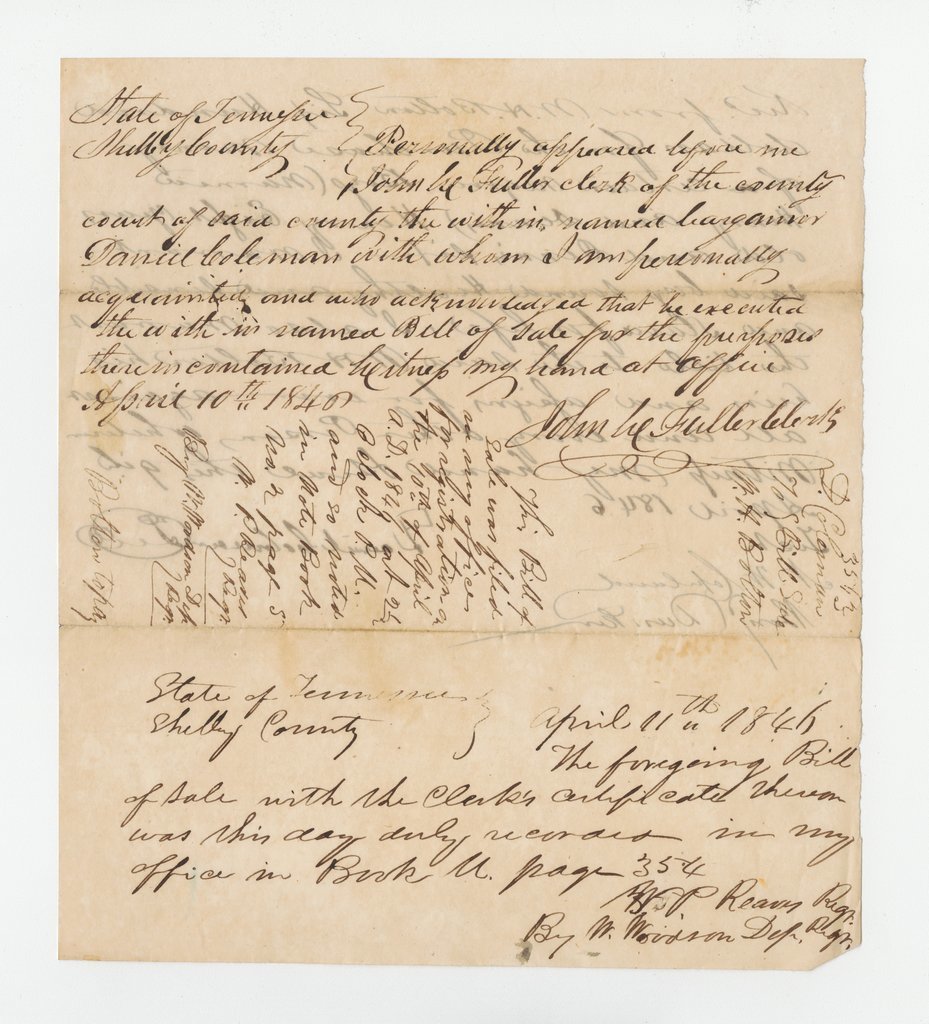 State of Tennessee
Shelby County
Personally appeared before me
John W Fuller clerk of the county
court of said county the with in named bargainor
Daniel Coleman with whom I am personally
acquainted and who acknowledged that he executed
the with in named Bill of Sale for the purposes
there in contained Witness my hand at office
April 10th 1846
John W Fuller Clerk
This Bill of
Sale was filed
in my office
for registration on
the 10th of April
A.D. 1846 at 2½
O'clock P.M.
and so noted
in Note Book
No 2 page 5
W. P Reaves
Regr.
By W. Woodson Dep.
Regr.
Bolton
D. Coleman
To Bill Sale
W. H. Bolton
3543
State of Tennessee
Shelby County
April 11th 1846
The foregoing Bill
of Sale with the Clerk's certificate thereon
was this day duly recorded in my
office in Book U. page 354
W P Reaves Regr.
By W. Woodson Dep. Regr.